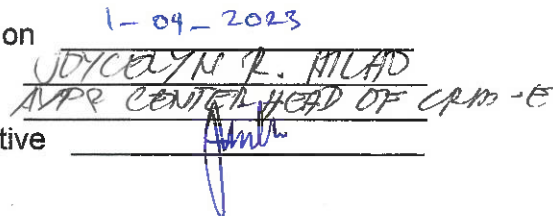 on 1-04-2023
JOYCELYN R. HILADO
AVPR CENTER HEAD OF CRM-E
tive